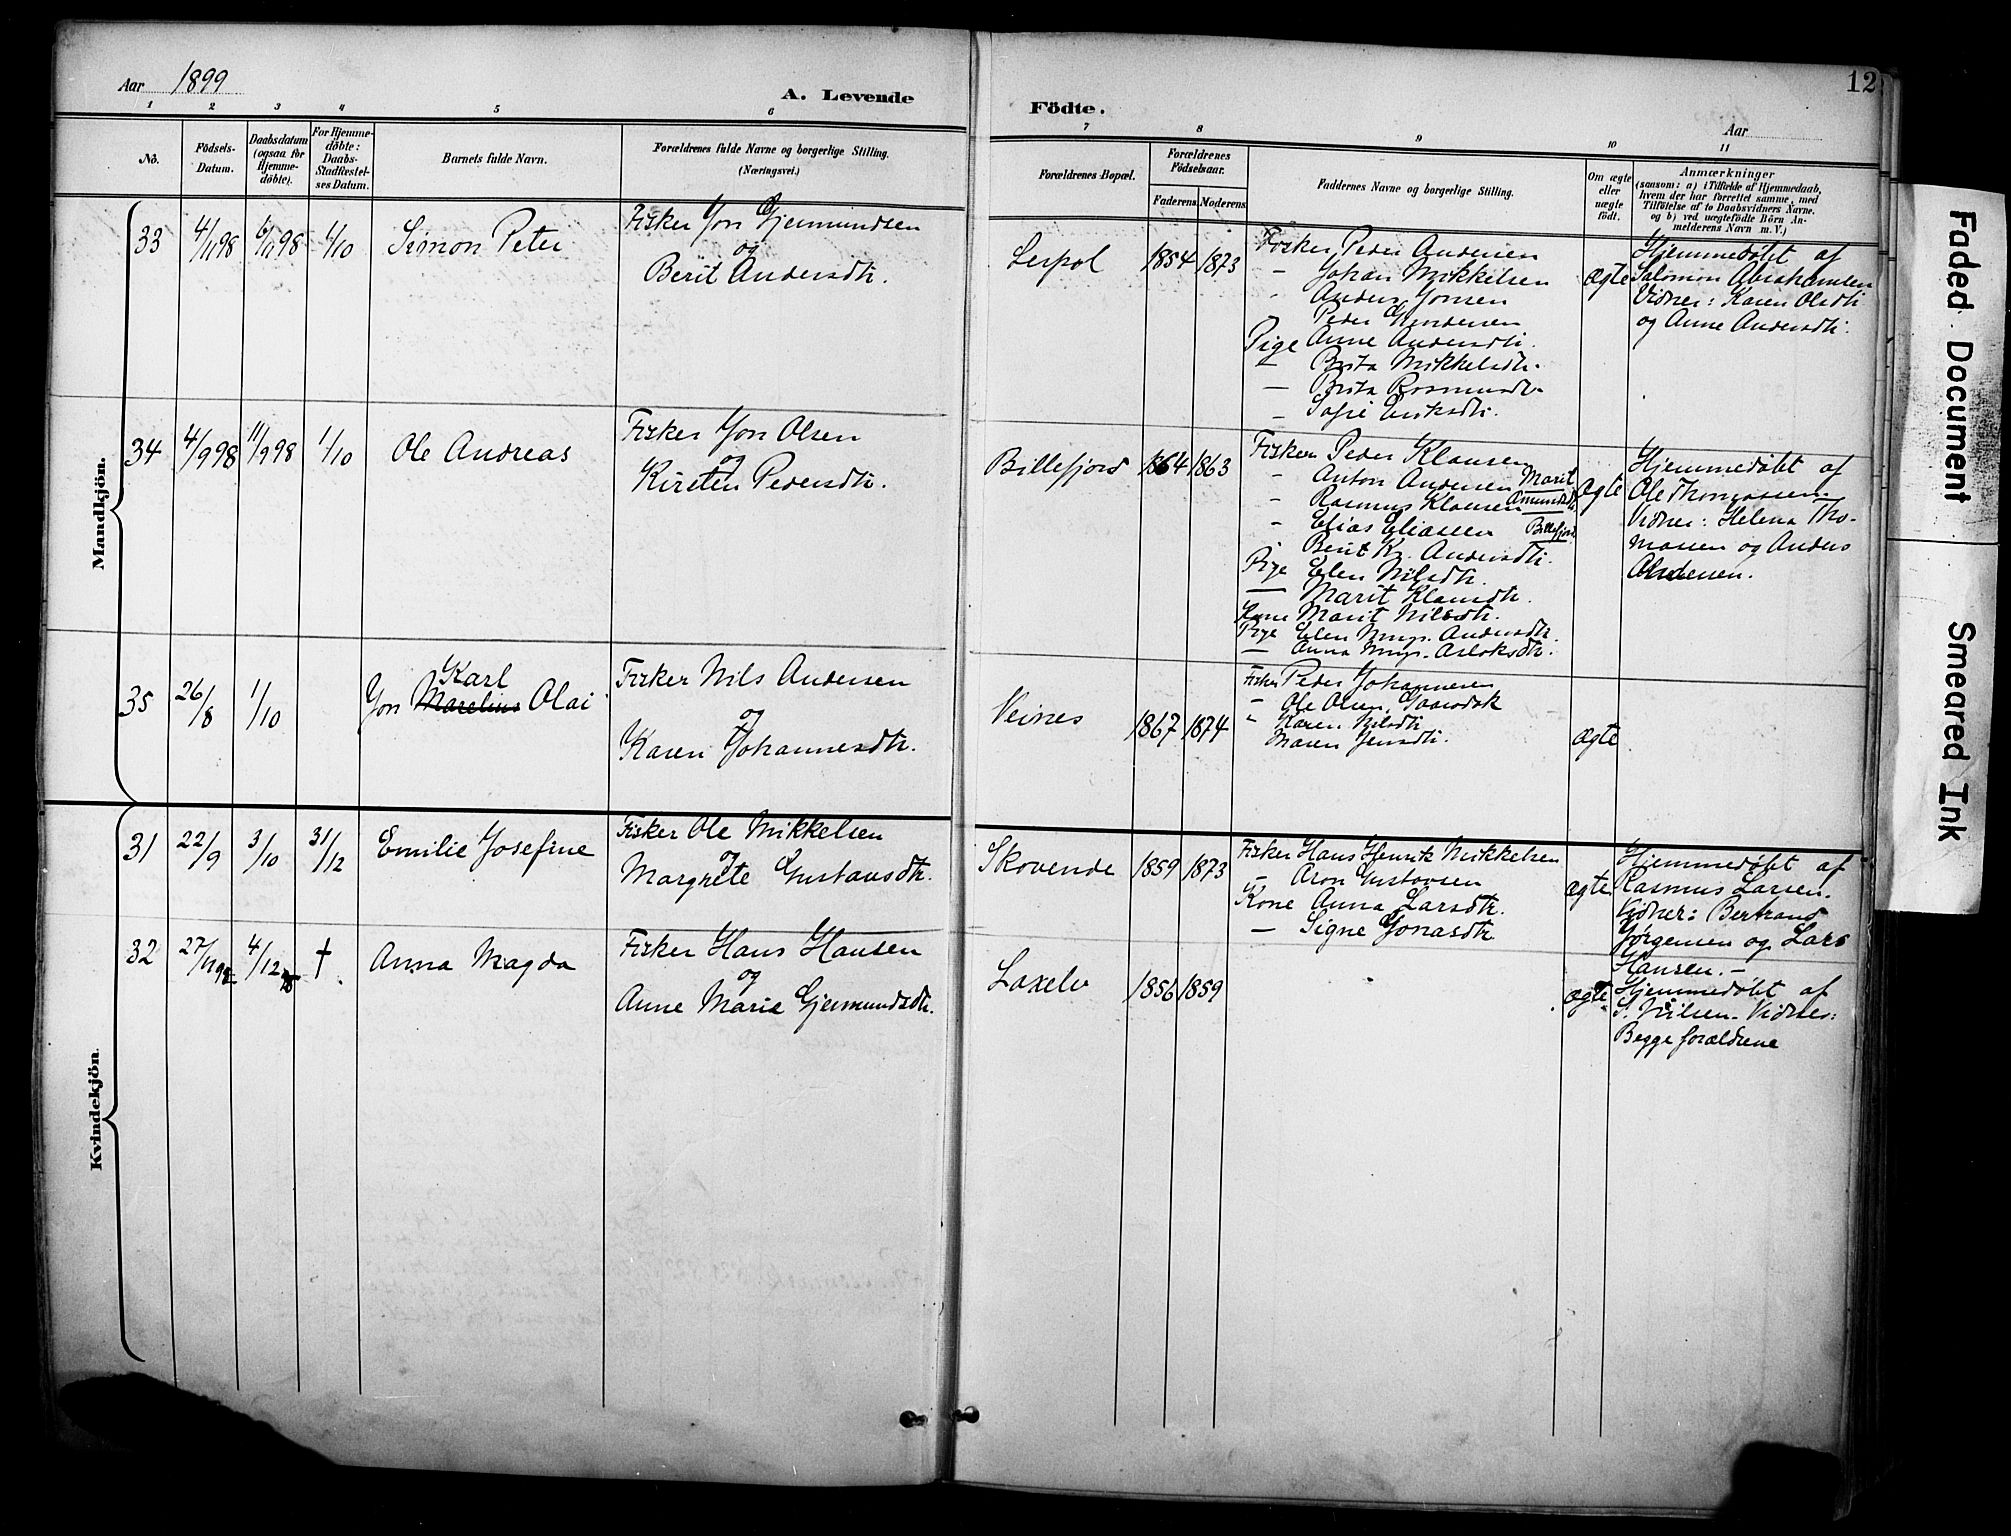 Aar 1899
A. Levende
Födte.
Aar
12
1 2 3 4 5 6 7 8 9 10 11
No.
Födsels-
Datum.
Daabsdatum
(ogsaa for
Hjemme-
döbte).
For Hjemme-
döbte:
Daabs-
Stadfæstel-
ses Datum.
Barnets fulde Navn.
Forældrenes fulde Navne og borgerlige Stilling.
(Næringsvei.)
Forældrenes Bopæl.
Forældrenes
Födselsaar.
Faderens. Moderens.
Faddernes Navne og borgerlige Stilling.
Om ægte
eller
uægte
födt.
Anmærkninger
(saasom: a) i Tilfælde af Hjemmedaab,
hvem der har forrettet samme, med
Tilföielse af to Daabsvidners Navne.
og b) ved uægtefödte Börn An-
melderens Navn m. V.)
Mandkjön.
33 4/11 98 6/11 98 1/10 Simon Peter
Fisker Jon Gjermundsen
og
Berit Andersdtr.
1854 1873
Fisker Peder Andersen
- Johan Mikkelsen
- Anders Jonsen
Peder
Pige Anne Andersdtr.
- Brita Mikkelsdtr.
- Brita
- Sofie Eriksdtr.
Ægte
Hjemmedøbt af
Salomon Abrahamsen
Vidner: Karen Olsdtr
og Anne Andersdtr.
34 4/9 98 11/9 98 1/10 Ole Andreas
Fisker Jon Olsen
og
Kirsten Pedersdtr.
Billefjord 1864 1863
Fisker Peder Klausen
- Anton Andersen Marit
- Rasmus Klausen Amundsdtr
- Elias Eliassen Billefjord
Berit Kr. Andersdtr.
Pige Elen Nilsdtr.
- Marit Klausdtr.
Kone Marit Nilsdtr.
Pige Elen Andersdtr.
- Anna Aslaksdtr.
Ægte
Hjemmedøbt af
Ole Thomassen.
Vidner: Helena Tho-
massen og Anders
Andersen.
35 26/8 1/10
Karl
Jon Marelius Olai
Fisker Nils Andersen
og
Karen Johannesdtr.
Veines 1867 1874
Fisker Peder Johannesen
- Ole Olsen,
- Karen Nilsdtr.
Maren Jensdtr.
Ægte
Kvindekjön.
31 22/9 3/10 31/12 Emilie Josefine
Fisker Ole Mikkelsen
og
Margrete Gustavsdtr.
Skovende 1859 1873
Fisker Hans Henrik Mikkelsen
- Aron Gustavsen
Kone Anna Larsdtr.
- Signe Jonasdtr.
Ægte
Hjemmedøbt af
Rasmus Larsen.
Vidner: Bertrand
Jørgensen og Lars
Hansen. -
32 27/11 98 4/12 98 † Anna Magda
Fisker Hans Hansen
og
Anne Marie Gjermundsdtr.
Laxelv 1856 1859
Ægte
Hjemmedøbt af
S. Nilsen. Vidner:
Begge forældrene
Faded Document
Smeared Ink